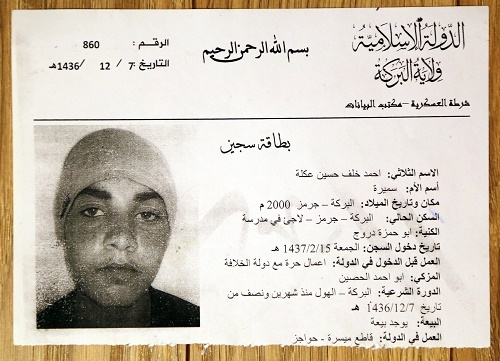 الدولة الإسلامية
ولاية البركة
بسم الله الرحمن الرحيم
الرقم: 860
التاريخ: 7/ 12 / 1436هـ
شرطة العسكرية -مكتب البيانات
بطاقة سجين
الاسم الثلاثي: احمد خلف حسين عكلة
أسم الأم: سميرة
مكان وتاريخ الميلاد: البركة – جرمز 2000 م
السكن الحالي: البركة – جرمز – لاجئ في مدرسة
الكنية: ابو حمزة دروج
تاريخ دخول السجن: الجمعة 1437/2/15 هـ
العمل قبل الدخول في الدولة: اعمال حرة مع دولة الخلافة
المزكي: ابو احمد الحصين
الدورة الشرعية: البركة – الهول منذ شهرين ونصف من
تاريخ 1436/12/7 هـ
البيعة: يوجد بيعة
العمل في الدولة: قاطع ميسرة - حواجز